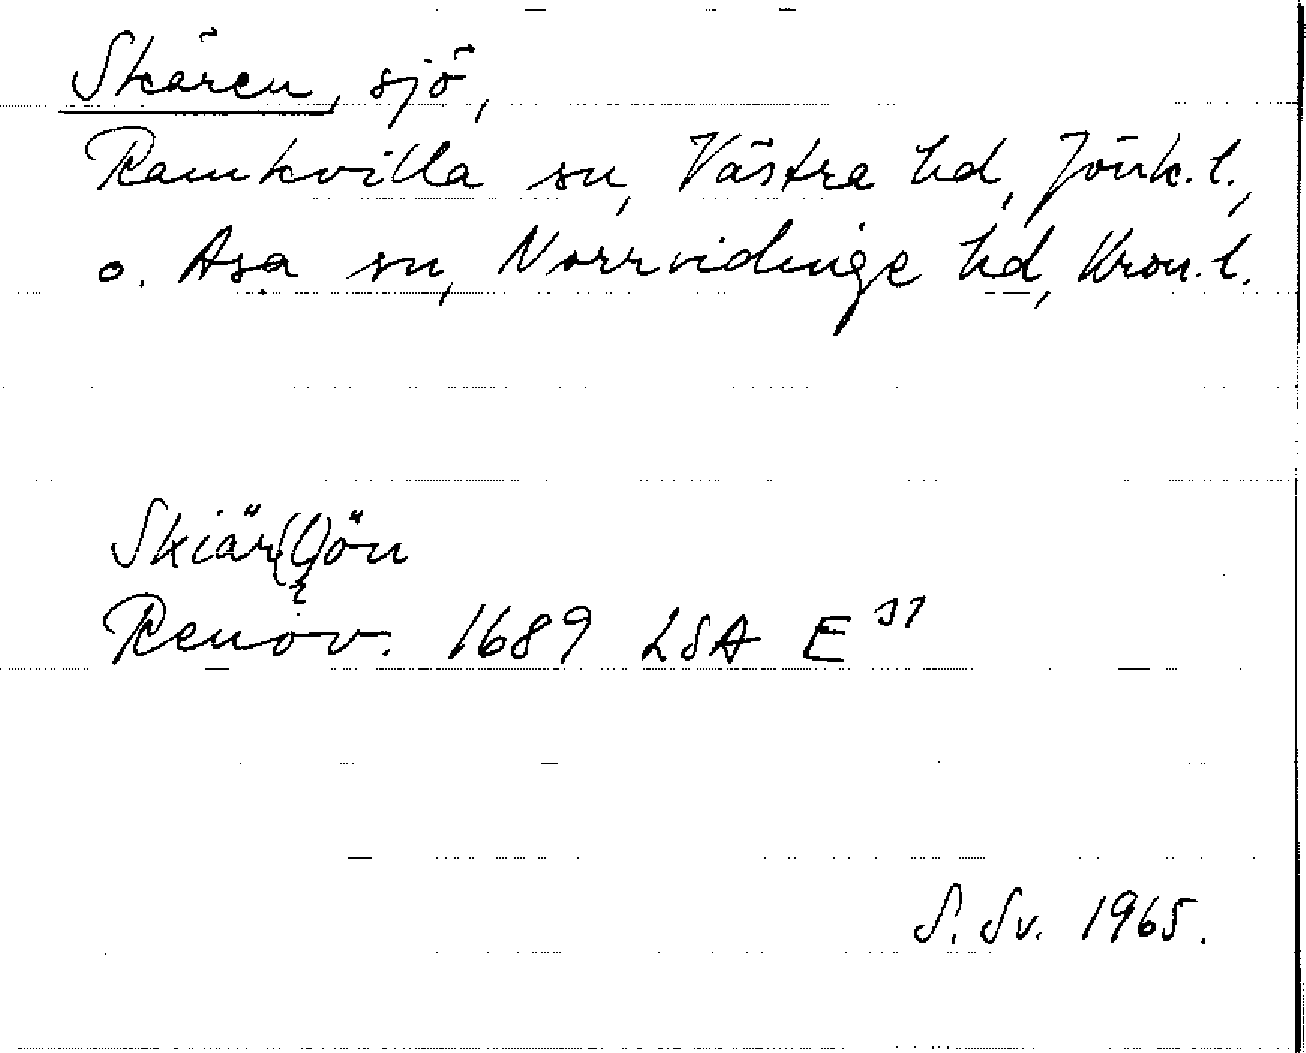 Skären, sjö,
Ramkvilla sn, Västra hd, Jönk. l.,
o. Asa sn, Norrvidinge hd, Kron. l.
Renov. 1689 LSA E 37
S. Sv. 1965.